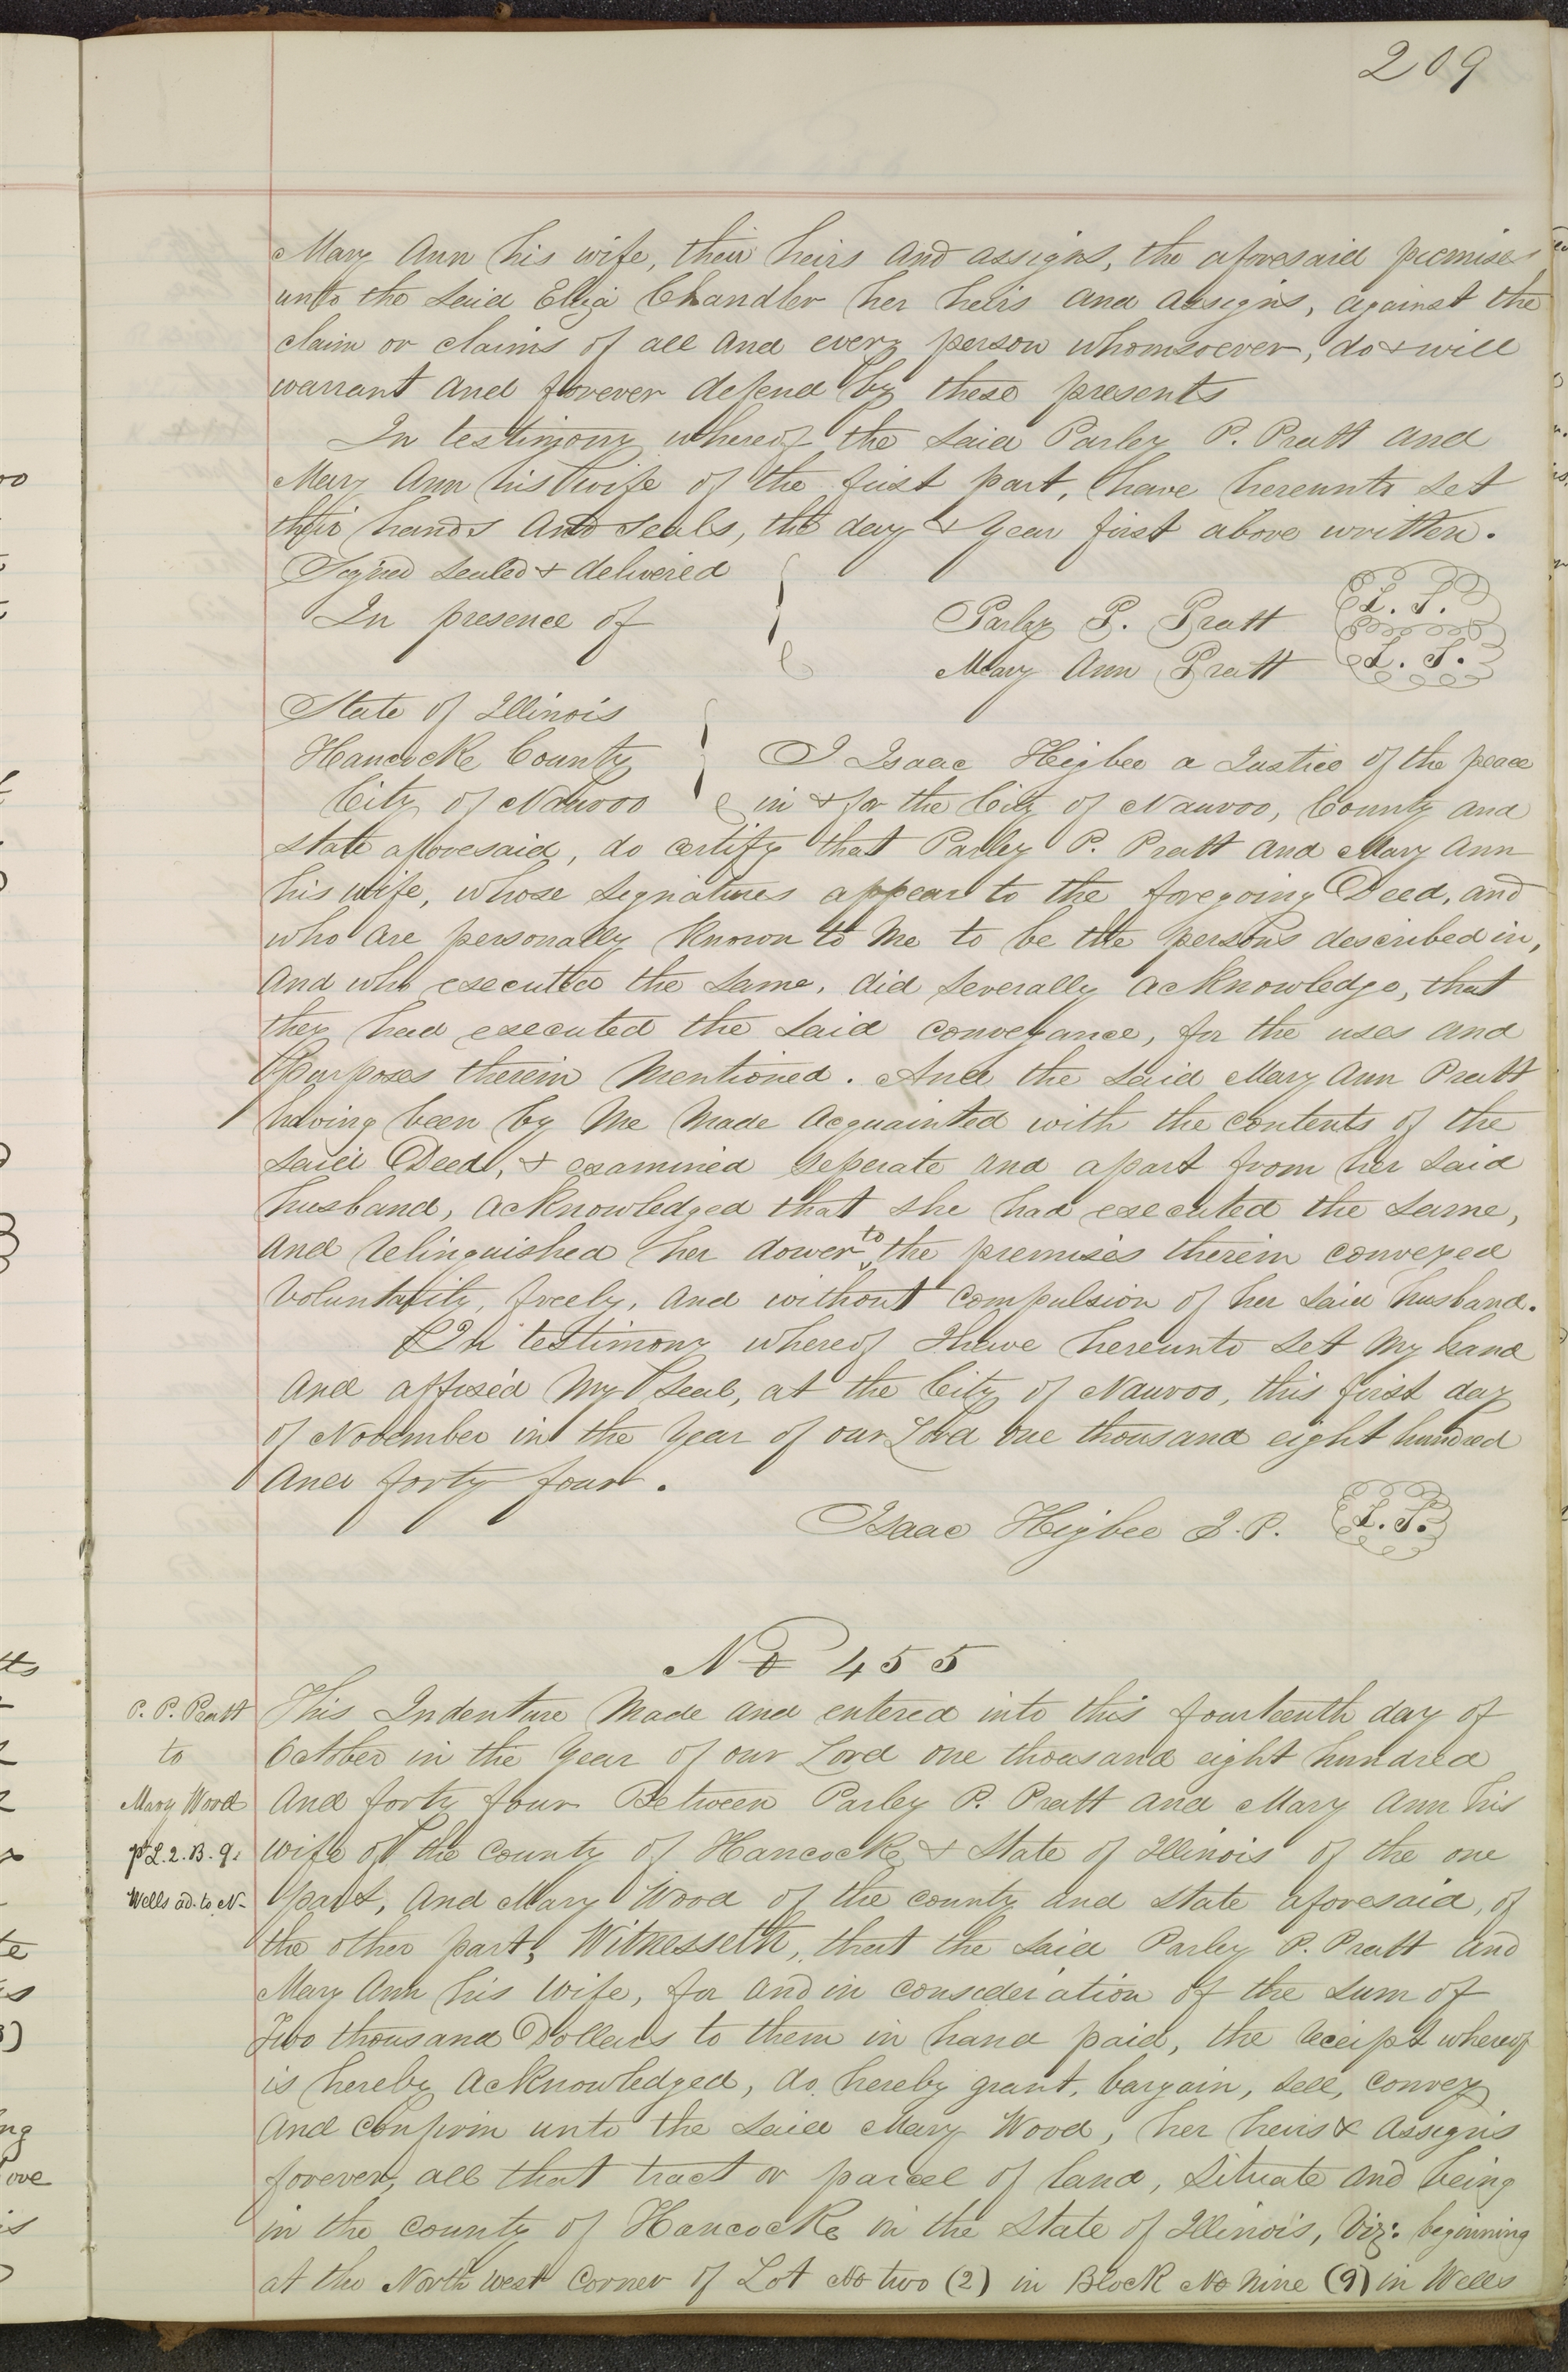 209
Mary Ann his wife, their heirs and assigns, the aforesaid premises
unto the said Eliza Chandler her heirs and assigns, against the
claim or claims of all and every person whomsoever, do & will
warrant and forever defend by these presents
In testimony whereof the said Parley P. Pratt and
Mary Ann his wife of the first part, have hereunto set
their hands and seals, the day & year first above written.
Signed sealed & delivered
In presence of
Parley P. Pratt L. S.
Mary Ann Pratt L. S.
State of Illinois
Hancocke County I Isaac Higbee a Justice of the peace
City of Nauvoo in & for the City of Nauvoo, County and
state aforesaid, do certify that Parley P. Pratt and Mary Ann
his wife, whose signatures appear to the foregoing Deed, and
who are personally known to me to be the persons described in,
and who executed the same, did severally acknowledge, that
they had executed the said conveyance, for the uses and
Purposes therein mentioned. And the said Mary Ann Pratt
having been by me made acquainted with the contents of the
said Deed, & examined seperate and apart from her said
husband, acknowledged that she had executed the same,
and relinquished her dower to the premises therein conveyed
voluntarily, freely, and without compulsion of her said husband.
In testimony whereof I have hereunto set my hand
and affixed my seal, at the City of Nauvoo, this first day
of November in the year of our Lord one thousand eight hundred
and forty four.
Isaac Higbee J. P. L. S.
No 455
P. P. Pratt
to
Mary Wood
pt L. 2. B. 9.
Wells ad. to N-
This Indenture made and entered into this fourteenth day of
October in the year of our Lord one thousand eight hundred
and forty four Between Parley P. Pratt and Mary Ann his
wife of the county of Hancocke & State of Illinois of the one
part, and Mary Wood of the county and state aforesaid, of
the other part, Witnesseth, that the said Parley P. Pratt and
Mary Ann his wife, for and in consideration of the sum of
Two thousand Dollars to them in hand paid, the receipt whereof
is hereby acknowledged, do hereby grant, bargain, sell, convey
and confirm unto the said Mary Wood, her heirs & assigns
forever, all that tract or parcel of land, situate and being
in the county of Hancocke in the State of Illinois, Viz: beginning
at the North west corner of Lot No two (2) in Block No nine (9) in Wells